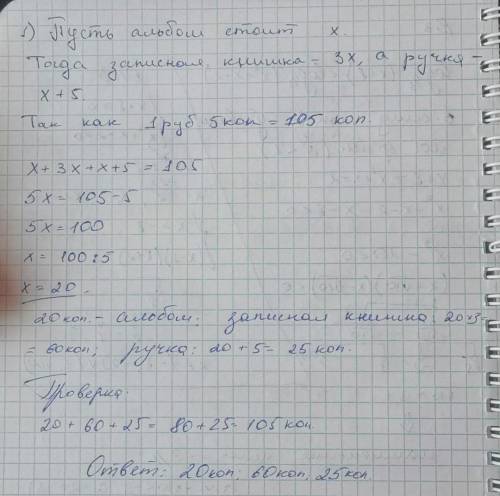 1) Пусть альбом стоит x.
Тогда записная книжка = 3x, а ручка -
x + 5
Так как 1 руб 5 коп = 105 коп.
x + 3x + x + 5 = 105
5x = 105 - 5
5x = 100
x = 100 : 5
x = 20.
20 коп. - альбом; записная книжка: 20·3=
= 60 коп; ручка: 20 + 5 = 25 коп.
Проверка.
20 + 60 + 25 = 80 + 25 = 105 коп
Ответ: 20 коп; 60 коп; 25 коп.